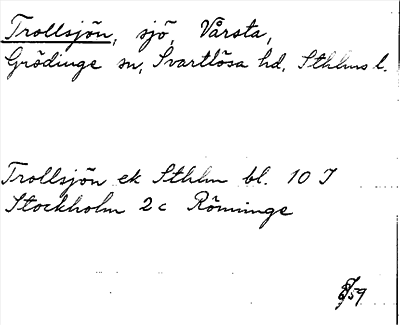 Trollsjön, sjö, Vårsta,
Grödinge sn, Svartlösa hd, Sthlms l.
Trollsjön ek Sthlm bl. 10 I
Stockholm 2 c Rönninge
59